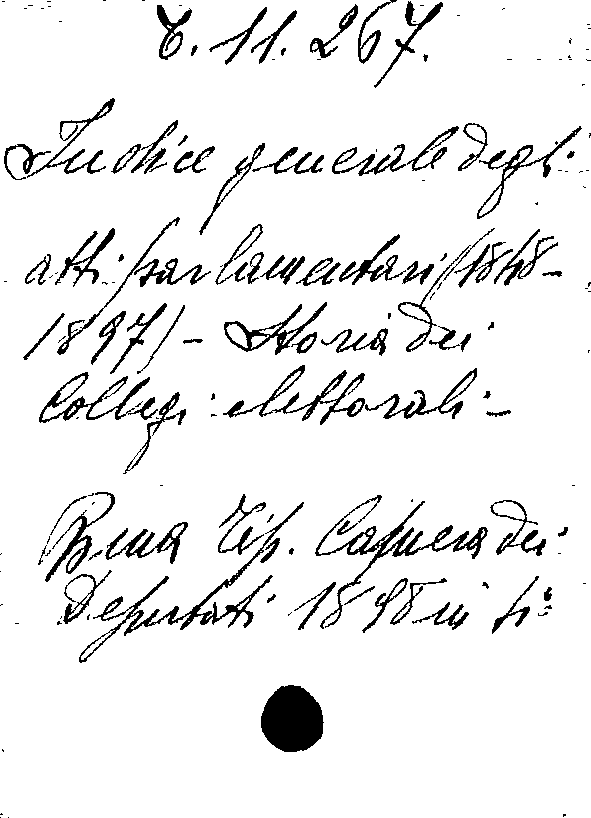 6. 11. 267.
Indice generale degli
atti parlamentari (1848-
1897) - Storia dei
Collegi elettorali -
Roma Tip. Camera dei
Deputati 1898 in